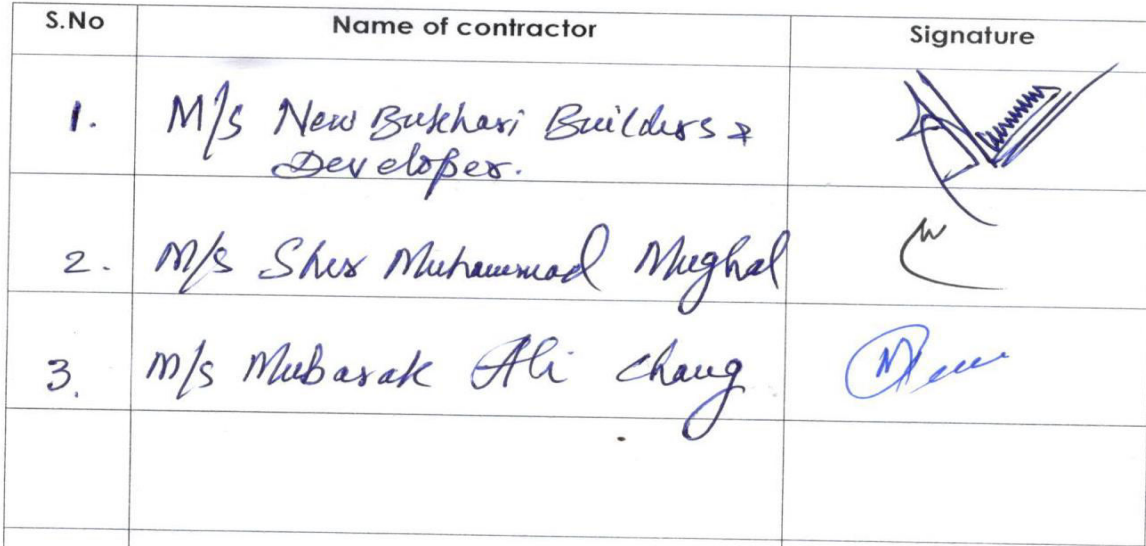 S.No Name of contractor Signature
1. M/s New Bukhari Builders &
Developer.
2. M/s Sher Muhammad Mughal
3. M/s Mubarak Ali Chang